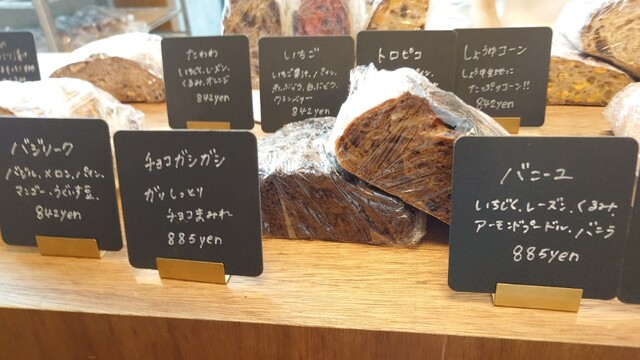 たわわ
いちじく、レーズン、
くるみ、オレンジ
842yen
いちご
842yen
トロピコ
しょうゆコーン
しょうゆ生地に
842yen
バジリーク
バジル、メロン、パイン、
マンゴー、うぐいす豆、
842yen
チョコガシガシ
ガッしっとり
チョコまみれ
885yen
バニーユ
いちじく、レーズン、くるみ、
アーモンドプードル、バニラ
885yen